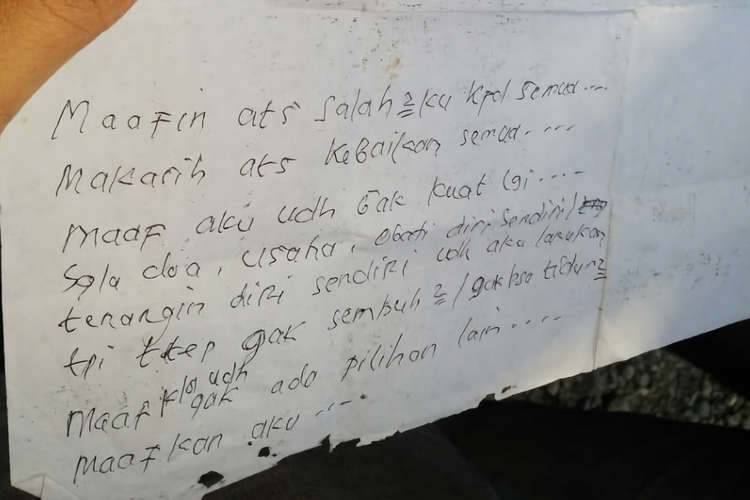 Maafin ats salah²ku kpd semua....
Makasih ats kebaikan semua....
Maaf aku udh gak kuat lgi....
Sgla doa, usaha, obati diri sendiri/
tenangin diri sendiri udh aku lakukan
tpi ttep gak sembuh²/gak bsa tidur²
Maaf klo udh gak ada pilihan lain....
Maafkan aku....